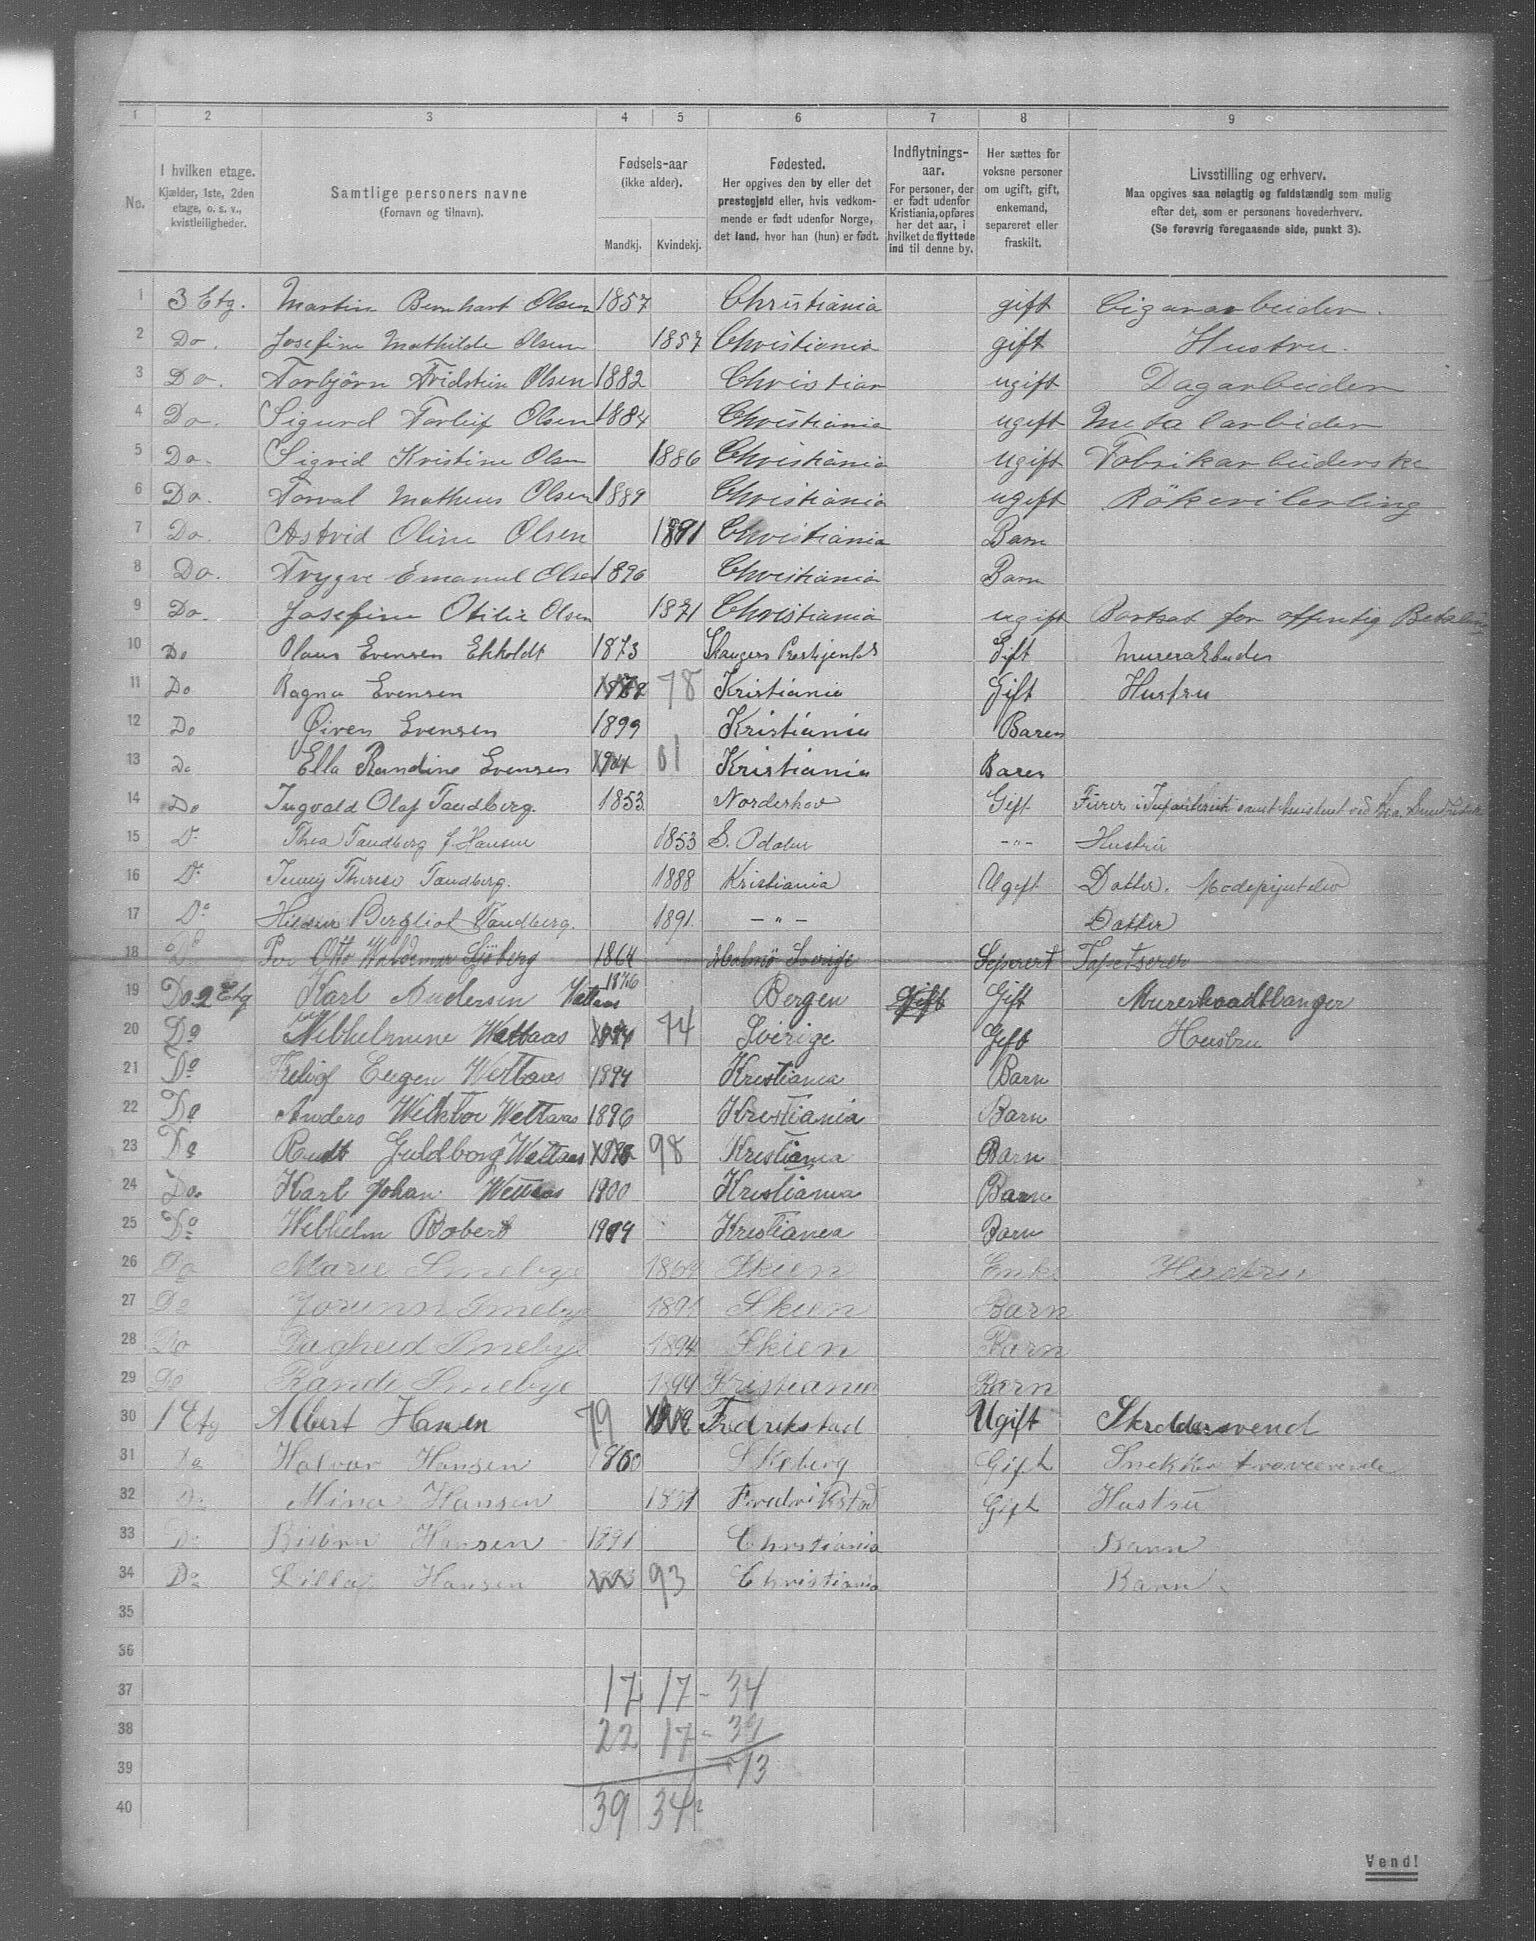 1 2 3 4 5 6 7 8 9
No. I hvilken etage. Kjælder, 1ste, 2den etage, o. s. v., kvistleiligheder. Samtlige personers navne (Fornavn og tilnavn). Fødsels-aar (ikke alder). Mandkj. Kvindekj. Fødested. Her opgives den by eller det prestegjeld eller, hvis vedkommende er født udenfor Norge, det land, hvor han (hun) er født. Indflytnings-aar. For personer, der er født udenfor Kristiania, opføres her det aar, i hvilket de flyttede ind til denne by. Her sættes for voksne personer om ugift, gift, enkemand, separeret eller fraskilt. Livsstilling og erhverv. Maa opgives saa nøiagtig og fuldstændig som mulig efter det, som er personens hovederhverv. (Se forøvrig foregaaende side, punkt 3).
1 3 Etg. Martin Bernhart Olsen 1857 Christiania gift Cigararbeider.
2 Do. Josefine Mathilde Olsen 1857 Christiania gift Hustru.
3 Do. Torbjørn Fridstein Olsen 1882 Christian ugift Dagarbeider
4 Do. Sigurd Torleif Olsen 1884 Christiania ugift Metalarbider
5 Do. Sigrid Kristine Olsen 1886 Christiania ugift Fabrikarbeiderske
6 Do. Torval Matheus Olsen 1889 Christiania ugift
7 Do. Astrid Oline Olsen 1891 Christiania Barn
8 Do. Trygve Emanuel Olsen 1896 Christiania Barn
9 Do. Josefine Otilie Olsen 1871 Christiania ugift Bortsat for offentlig Betaling
10 Do Olaus Evensen Ekholdt 1873 Gift Murerarbeider
11 Do Ragna Evensen 1878 78 Kristiania Gift Hustru
12 Do Øiven Evensen 1899 Kristiania Baren
13 Do Ella Randine Evensen 1901 01 Kristiania Baren
14 Do Ingvald Olaf Tandberg. 1853 Norderhov Gift Furer i Infanteriet samt
15 Do Thea Tandberg f. Hansen 1853 S. Odalen -"- Hustru
16 Do Jenny Therese Tandberg. 1888 Kristiania Ugift Datter.
17 Do Hildur Bergliot Tandberg. 1891 -"- Datter
18 Do Per Otto Waldemar Sjöberg 1864 Malmø Sverige Seperert Tapetserer
19 Do 2 Etg Karl Andersen Wettaas 1876 Bergen Gift Gift Murerhaandtlanger
20 Do Wilhelmine Wettaas 1874 74 Sverige Gift Hustru
21 Do Fritiof Eugen Wettaas 1894 Kristiania Barn
22 Do Anders Wicktor Wettaas 1896 Kristiania Barn
23 Do Rudt Guldborg Wettaas 1898 98 Kristiania Barn
24 Do. Karl Johan Wettaas 1900 Kristiania Barn
25 Do Wilhelm Robert 1904 Kristiania Barn
26 Do Marie Smebye 1864 Skien Enke Hustru
27 Do Jorunn Smebye 1891 Skien Barn
28 Do Ragheid Smebye 1894 Skien Barn
29 Do Randi Smebye 1899 Kristiania Barn
30 1 Etg Albert Hansen 79 Fredrikstad Ugift Skreddersvend
31 Do Halvar Hansen 1860 Skiberg Gift Snekker
32 Do Mina Hansen 1851 Fredrikstad Gift Hustru
33 Do Hansen 1891 Christiania Barn
34 Do Lilla Hansen 1893 93 Christiania Barn
35
36
37 17 17 - 34
38 22 17 - 39
39 73
40 39 34
Vend!